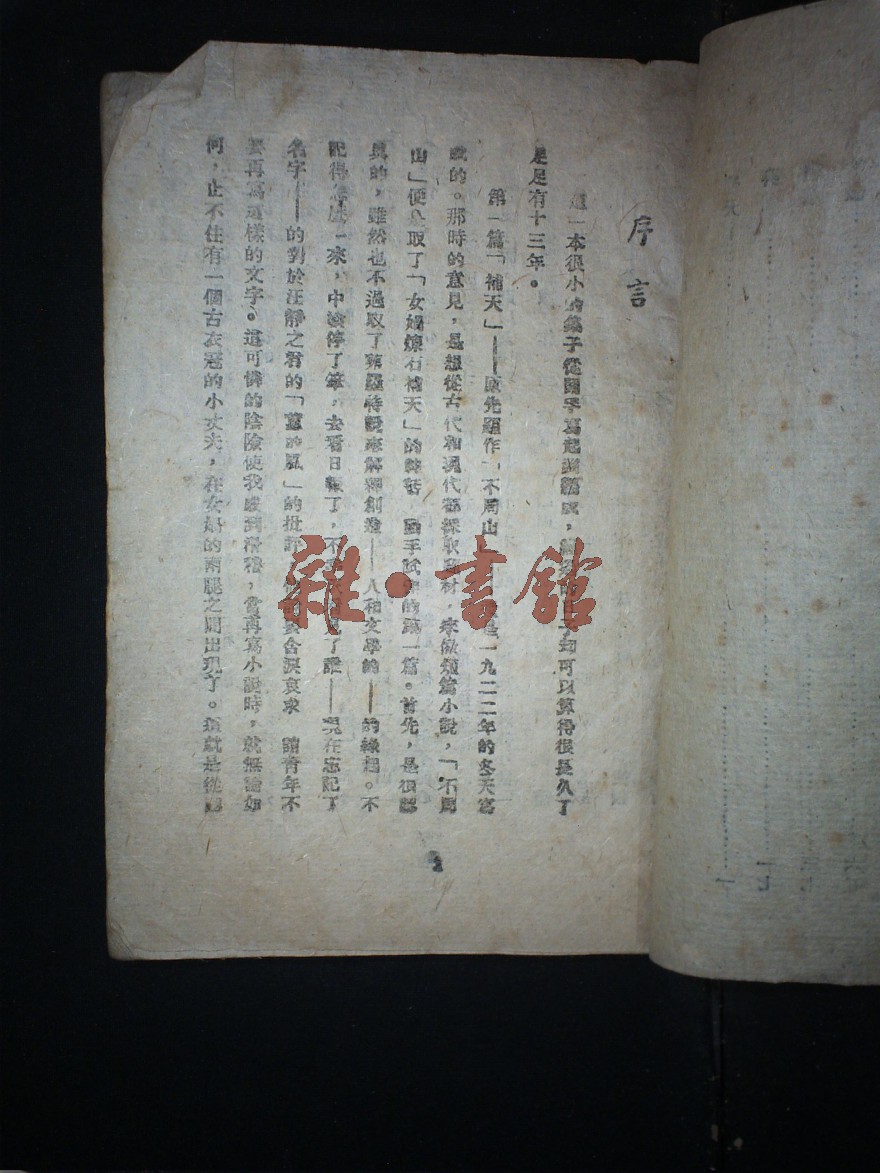 序言
這一本很小的集子從開手寫起到編成，經過的日子却可以算得很長久了
足足有十三年。
第一篇「補天」——原先題作「不周山」，還是一九二二年的冬天寫
成的。那時的意見，是想從古代和現代都採取題材，來做短篇小說，「不周
山」便是取了「女媧煉石補天」的神話，動手試作的第一篇。首先，是很認
真的，雖然也不過取了茀羅特說來解釋創造——人和文學的——的緣起。不
記得怎麼一來，中途停了筆，去看日報了，不幸正看見了誰——現在忘記了
名字——的對於汪靜之君的「蕙的風」的批評，他說要含淚哀求 請青年不
要再寫這樣的文字。這可憐的陰險使我感到滑稽，當再寫小說時，就無論如
何，止不住有一個古衣冠的小丈夫，在女媧的兩腿之間出現了。這就是從認
雜·書館